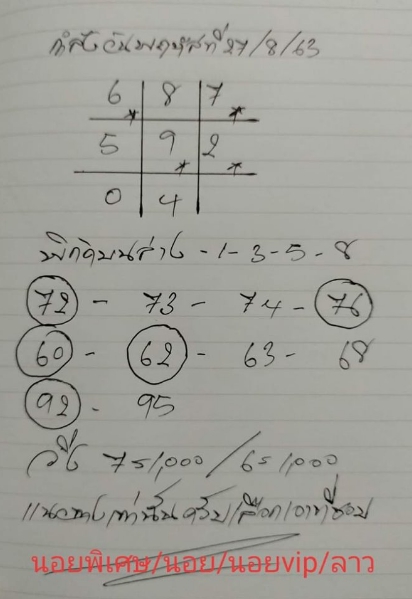 กำลังวันพฤหัสที่ 27/8/63
6 8 7
5 9 2
0 4
พิกัดบนล่าง - 1 - 3 - 5 - 8
72 - 73 - 74 - 76
60 - 62 - 63 - 68
92 - 95
วิ่ง 75/000 / 65/000
แนวทางเท่านั้นครับ/เลือกเอาที่ชอบ
นอยพิเศษ/นอย/นอยvip/ลาว